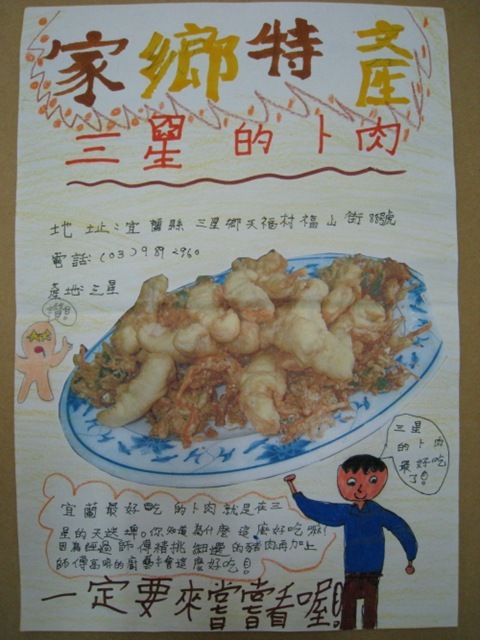 家鄉特產
三星的卜肉
地址:宜蘭縣三星鄉天福村福山街88號
電話:(03)989 2960
產地:三星
讚!
三星的卜肉最好吃了!
宜蘭最好吃的卜肉就是在三
星的天送埤。你知道為什麼這麼好吃嘛?
因為經過師傅精挑細選的豬肉再加上
師傅高明的廚藝才會這麼好吃!
一定要來嘗嘗看喔!!